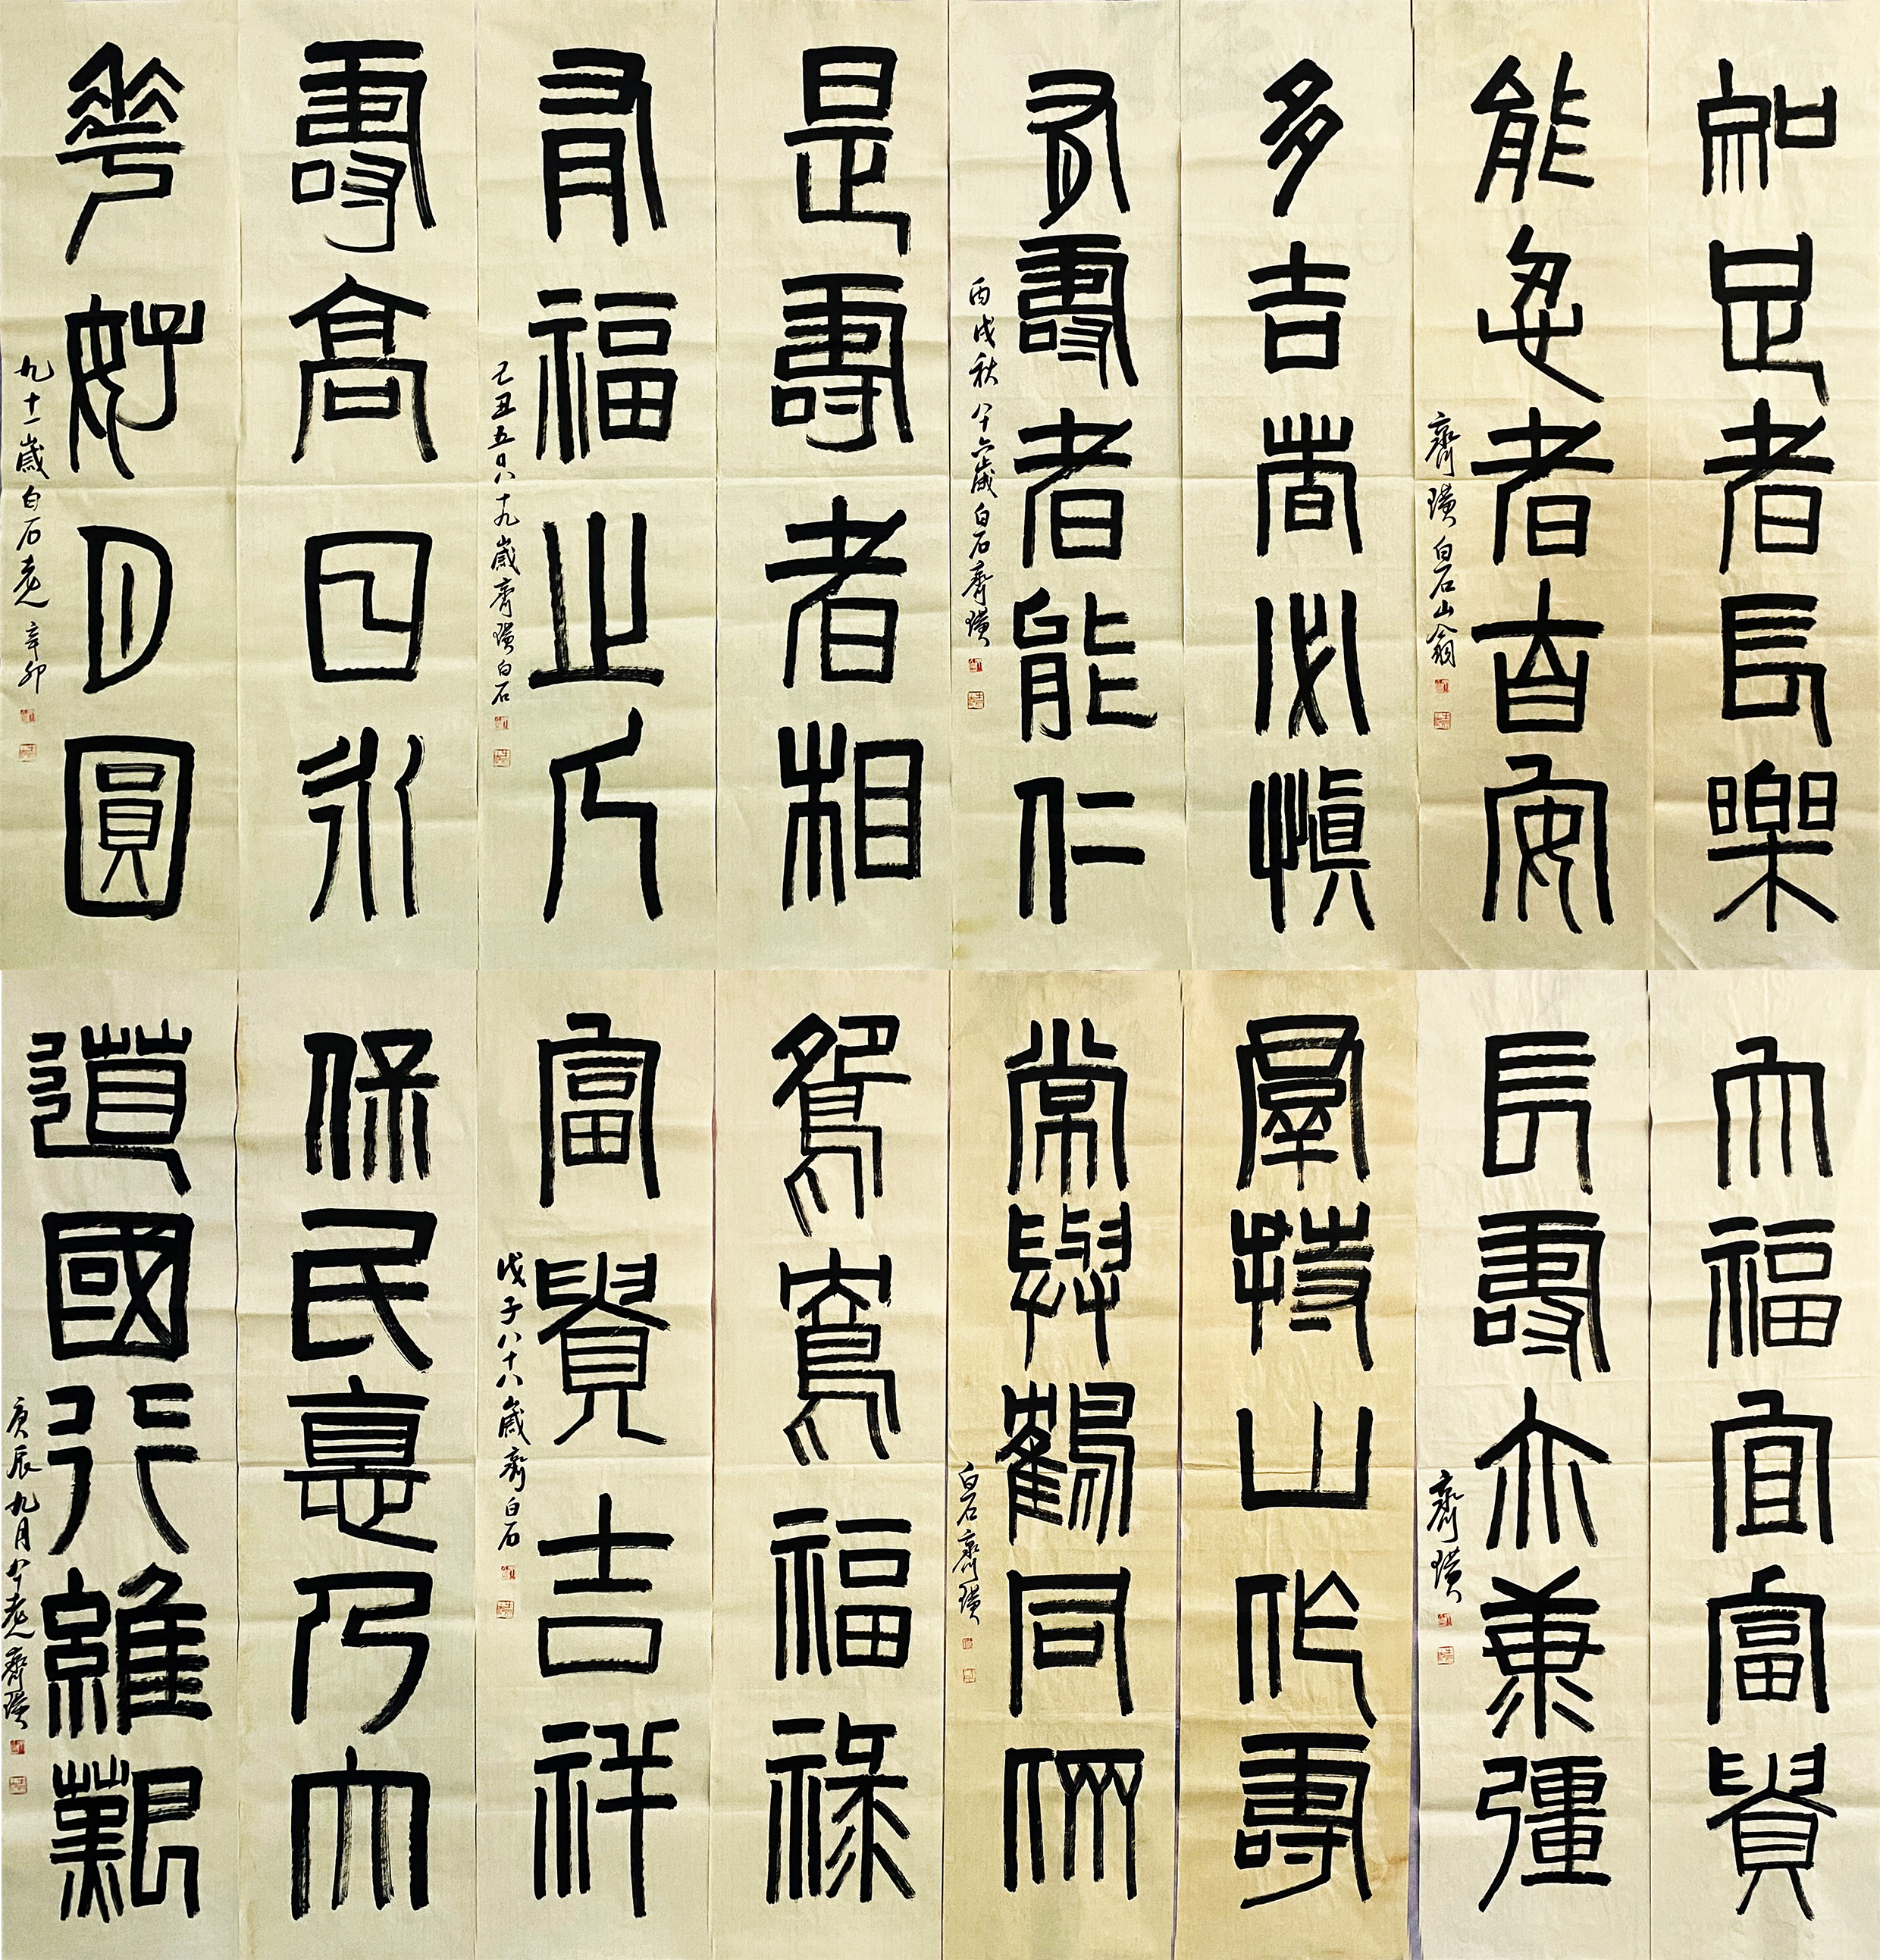 知足者長樂
能忍者自安
齊璜白石山翁
多吉必慎
有壽者能仁
丙戌秋八十六歲白石齊璜
是壽者相
有福之人
己丑五月八十九歲齊璜白石
壽高日永
華好月圓
九十一歲白石老人辛卯
大福宜富貴
長壽亦兼彊
齊璜
羣持山作壽
常與鶴同
白石齊璜
鴛鴦福祿
富貴吉祥
戊子八十八歲齊白石
保民悳乃大
道國行維艱
庚辰九月八十老人齊璜